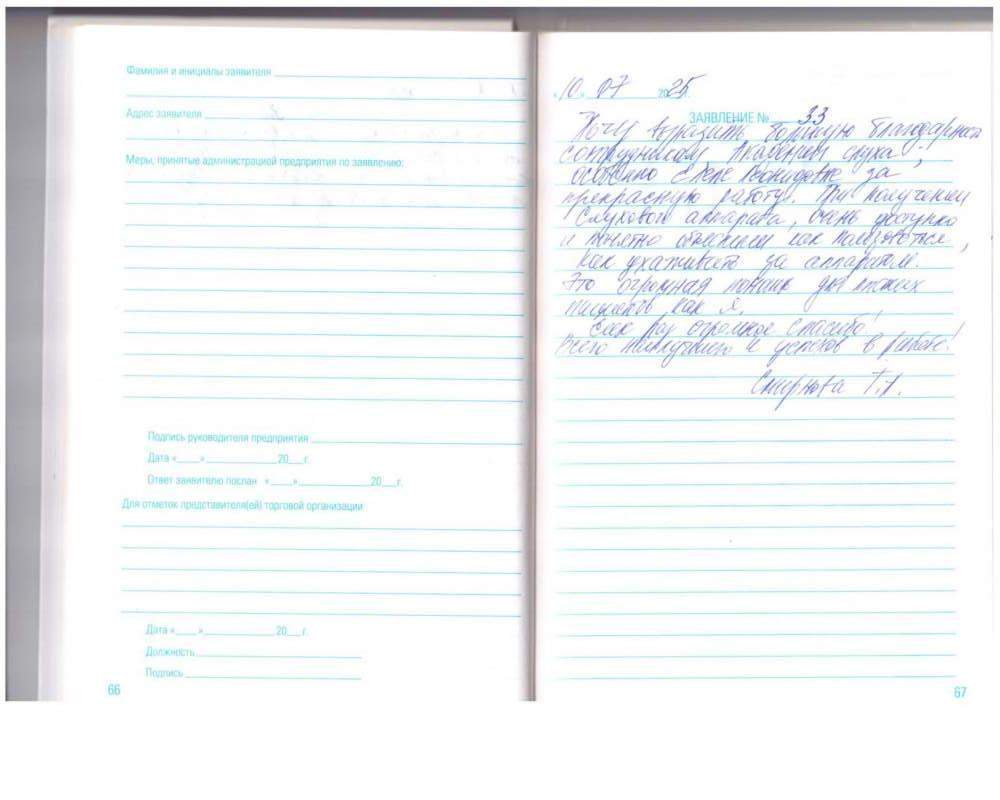 Фамилия и инициалы заявителя
Адрес заявителя
Меры, принятые администрацией предприятия по заявлению:
Подпись руководителя предприятия
Дата «____» ____________ 20___г.
Ответ заявителю послан «____» ____________ 20___г.
Для отметок представителя(ей) торговой организации
Дата «____» ____________ 20___г.
Должность
Подпись
66
10. 07 2025
ЗАЯВЛЕНИЕ № 33
Хочу выразить большую благодарность
сотрудникам слуха,
особенно Елене Леонидовне за
прекрасную работу. При получении
слухового аппарата, очень доступно
и понятно объяснили как пользоваться,
как ухаживать за аппаратом.
Это огромная помощь для таких
пациентов как я.
Ещё раз огромное спасибо!
Всего наилучшего и успехов в работе!
Смирнова Т.А.
67